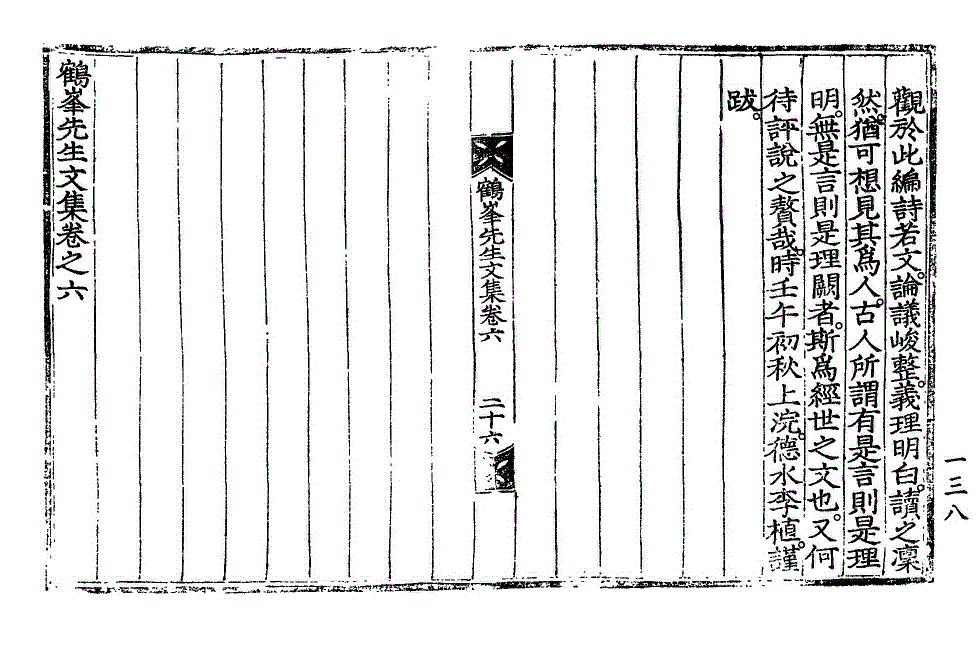 觀於此編詩若文。論議峻整。義理明白。讀之凜
然。猶可想見其爲人。古人所謂有是言則是理
明。無是言則是理闕者。斯爲經世之文也。又何
待評說之贅哉。時壬午初秋上浣。德水李植。謹
跋。
鶴峯先生文集卷六
二十六
鶴峯先生文集卷之六
一三八